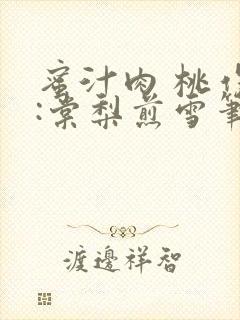 蜜汁肉桃
:棠梨煎雪
渡邊祥智